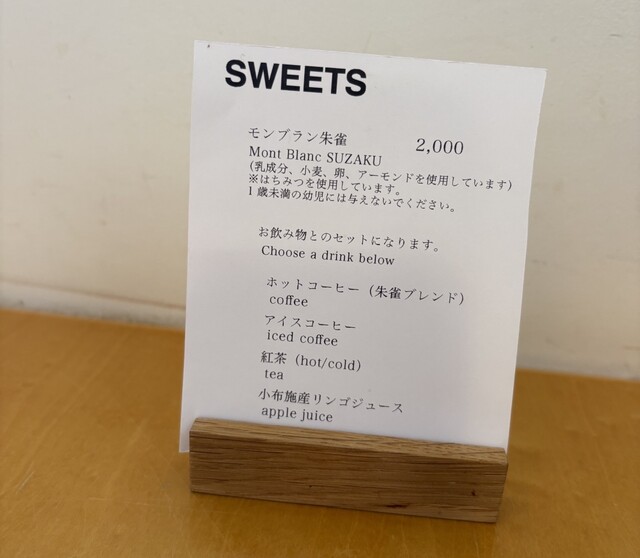 SWEETS
モンブラン朱雀 2,000
Mont Blanc SUZAKU
(乳成分、小麦、卵、アーモンドを使用しています)
※はちみつを使用しています。
1歳未満の幼児には与えないでください。
お飲み物とのセットになります。
Choose a drink below
ホットコーヒー（朱雀ブレンド）
coffee
アイスコーヒー
iced coffee
紅茶（hot/cold）
tea
小布施産リンゴジュース
apple juice